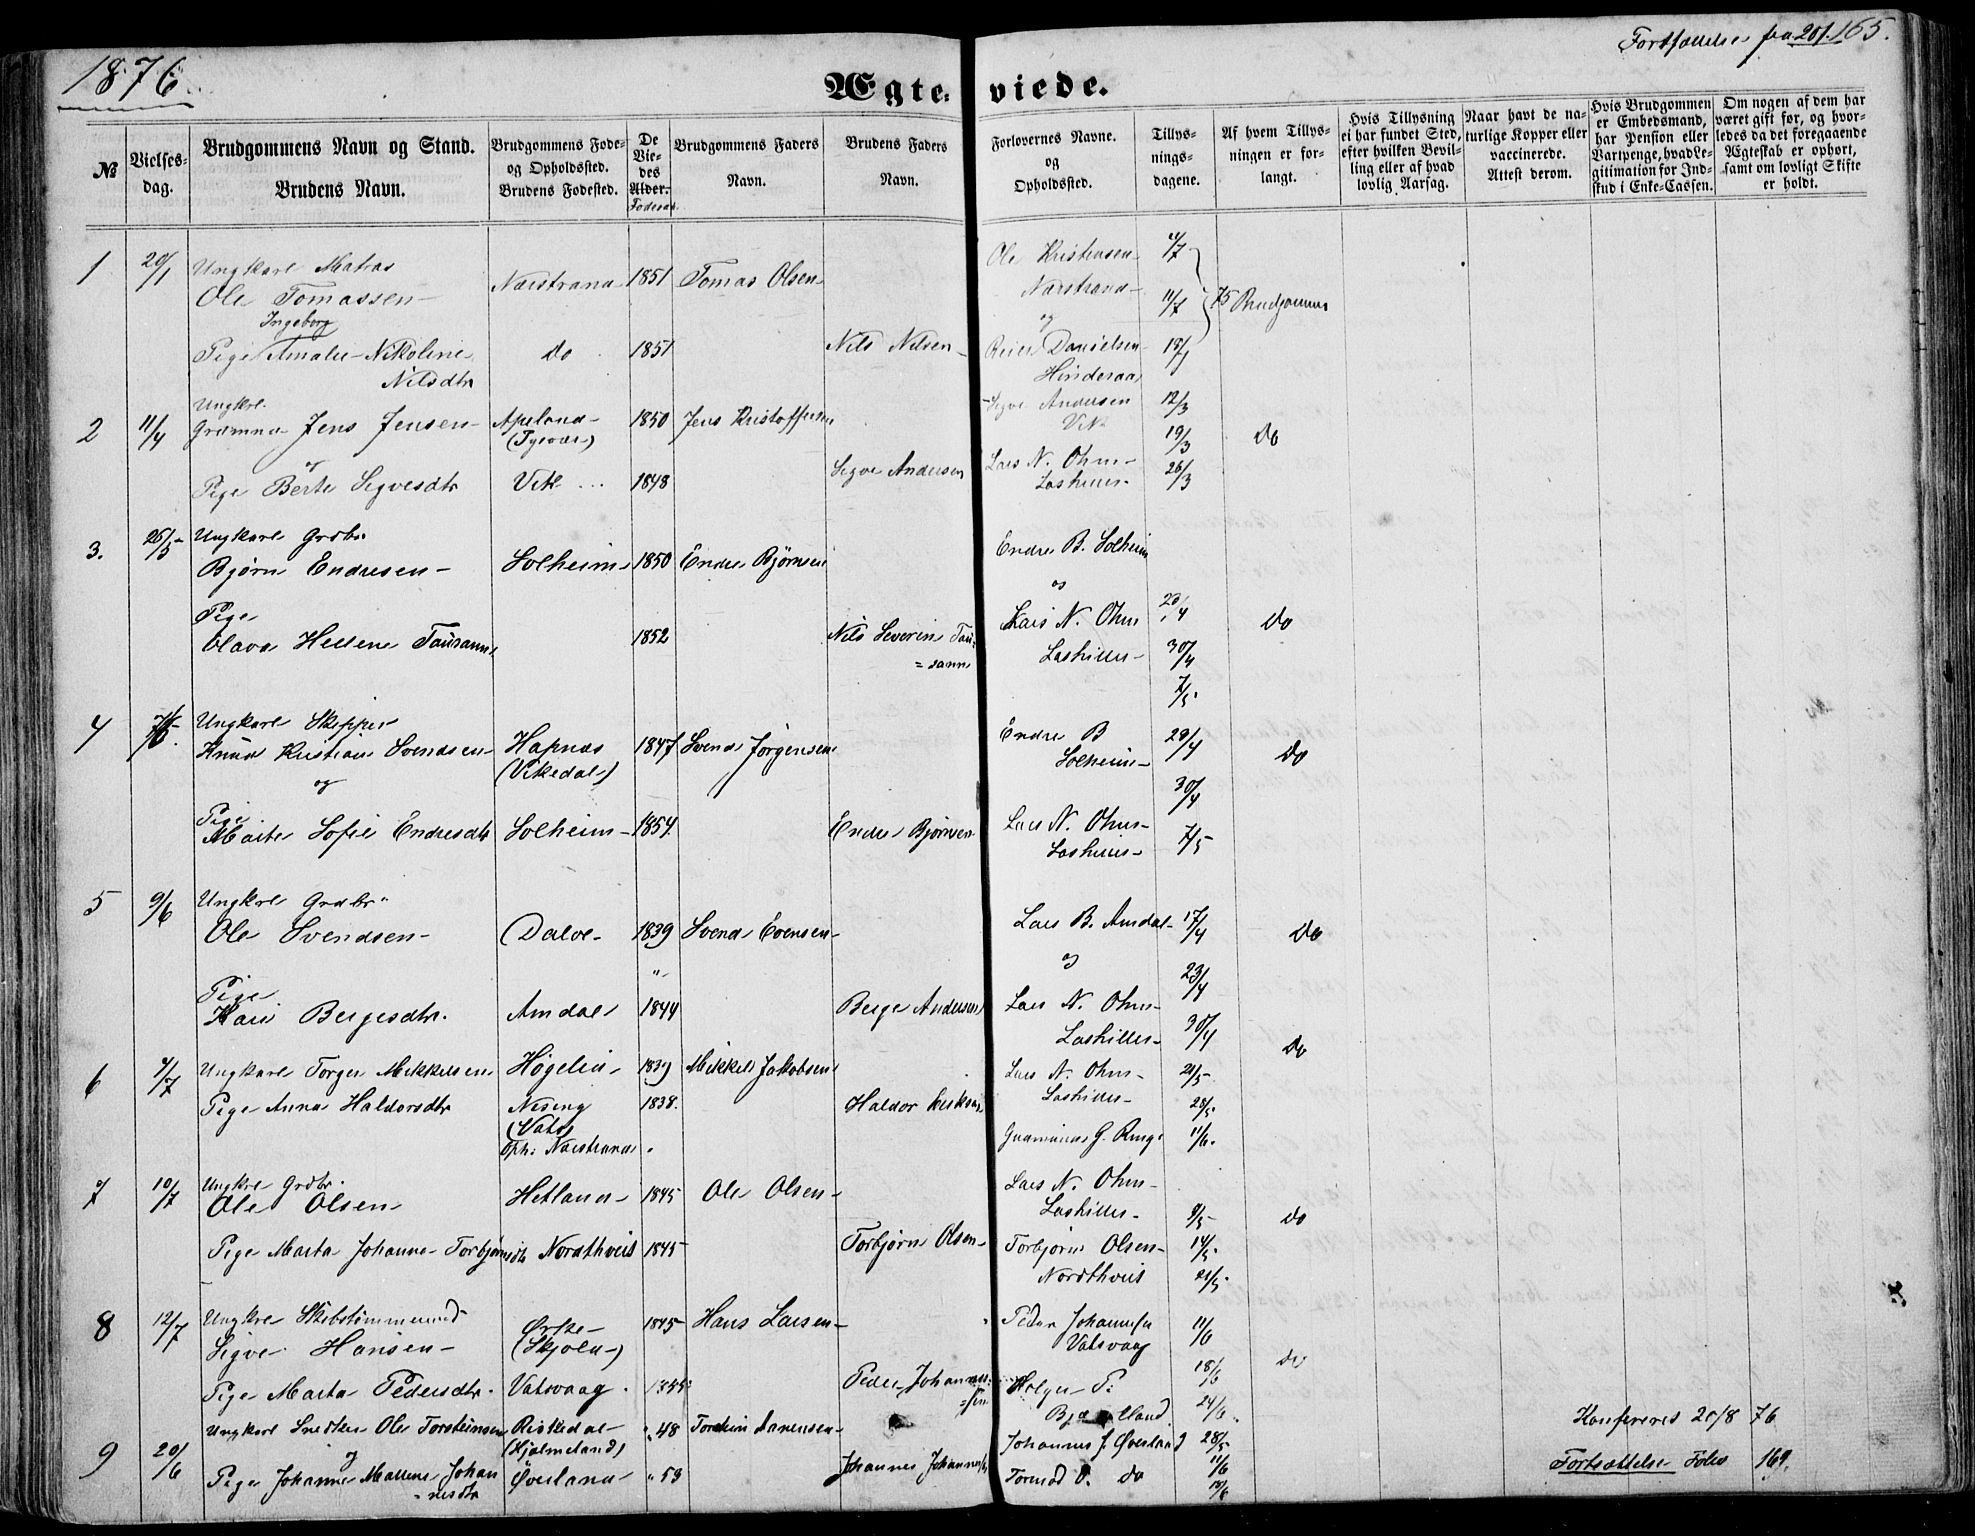 1876
Fortsættelse fra 201. 165.
Ægteviede.
№
Vielsesdag.
Brudgommens Navn og Stand.
Brudens Navn.
Brudgommens Fode- og Opholdssted.
Brudens Fodested.
De Viedes Alder.
Fodesaar
Brudgommens Faders Navn.
Brudens Faders Navn.
Forlovernes Navne. og Opholdssted.
Tillysningsdagene.
Af hvem Tillysningen er forlangt.
Hvis Tillysning ei har fundet Sted, efter hvilken Bevilling eller af hvad lovlig Aarsag.
Naar havt de naturlige Kopper eller vaccinerede. Attest derom.
Hvis Brudgommen er Embedsmand, har Pension eller Vartpenge, hvad Legitimation for Indskud i Enke-Cassen.
Om nogen af dem har været gift før, og hvorledes da det foregaaende Ægteskab er ophort, samt om lovligt Skifte er holdt.
1 20/1 Ungkarl Matros
Ole Tomassen Narstrand 1851 Tomas Olsen
Ole Kristensen
Narstrand 11/7 75 Brudgommen
og
Ingeborg
Pige Amalie Nikoline Nilsdtr do 1851 Nils Nilsen
Reier Danielsen
Hinderaa
2 11/4 Ungkrl.
Grdmnd Jens Jensen Apeland (Tysvær) 1850 Jens Kristoffersen
Sigve Andersen 12/3
Vik
19/3 Do
og
Pige Berte Sigvesdtr Vik 1848 Sigve Andersen
Lars N. Ohm 26/3
Loshuus
3. 26/5 Ungkarl Grdbr.
Bjørn Endresen Solheim 1850 Endre Bjørnsen
Endre B. Solheim
og
Pige
Olava Hellene Tausann 1852 Nils Severin Tausann
Lars N. Ohm 23/4 Do
30/4
7/5.
4 Ungkarl Skipper
Knud Kristian Svendsen Hapnes (Vikedal) 1847 Svend Jørgensen
Endre B Solheim Do
og 30/4
Pige
Marte Sofie Endresdtr Solheim 1854 Endre Bjørnsen
Lars N. Ohm 7/5
5 9/6 Ungkrl Grdbr
Ole Svendsen Dalve 1839 Svend Evensen
Lars B. Amdal 17/4 Do
og 23/4
Pige
Kari Bergesdtr. Amdal 1844 Berge Andersen
Lars N. Ohm
30/4
6 4/7 Ungkarl Torger Mikkelsen Høgelid 1839 Mikkel Jakobsen
Lars N. Ohm 21/5 Do
Pige Anna Haldorsdtr Nesing (Vats) Oph. Narstrand 1838. Haldor
28/5.
Gudmund G. Ringe 11/6.
7 10/7 Ungkrl Grdbr.
Ole Olsen Hetland 1845 Ole Olsen
Lars N. Ohm
Do
Pige Marta Johanne Torbjørnsdtr Nordthveit 1845 Torbjørn Olsen
Torbjørn Olsen 14/5.
Nordthveit 21/5.
8 12/7 Ungkrl Skibstømmermd
Sigve Hansen Ørke (Skjold) 1845 Hans Larsen
Peder Johannesen 11/6
Vatsvaag
18/6 do
Pige Marta Pedersdtr. Vatsvaag. Peder Johannessen
Holger P.
9 20/6 Ungkarl Snedker Ole Torsteinsen Riskedal (Hjelmeland) " 48
Johannes J. Øverland 28/5
og 11/6
Pige Johanne Mallene Johannesdtr Øverland " 53 Johannes Johannessen
Tormod O. do 18/6
Konfereret 20/8 76
Fortsættelse Folio 169.